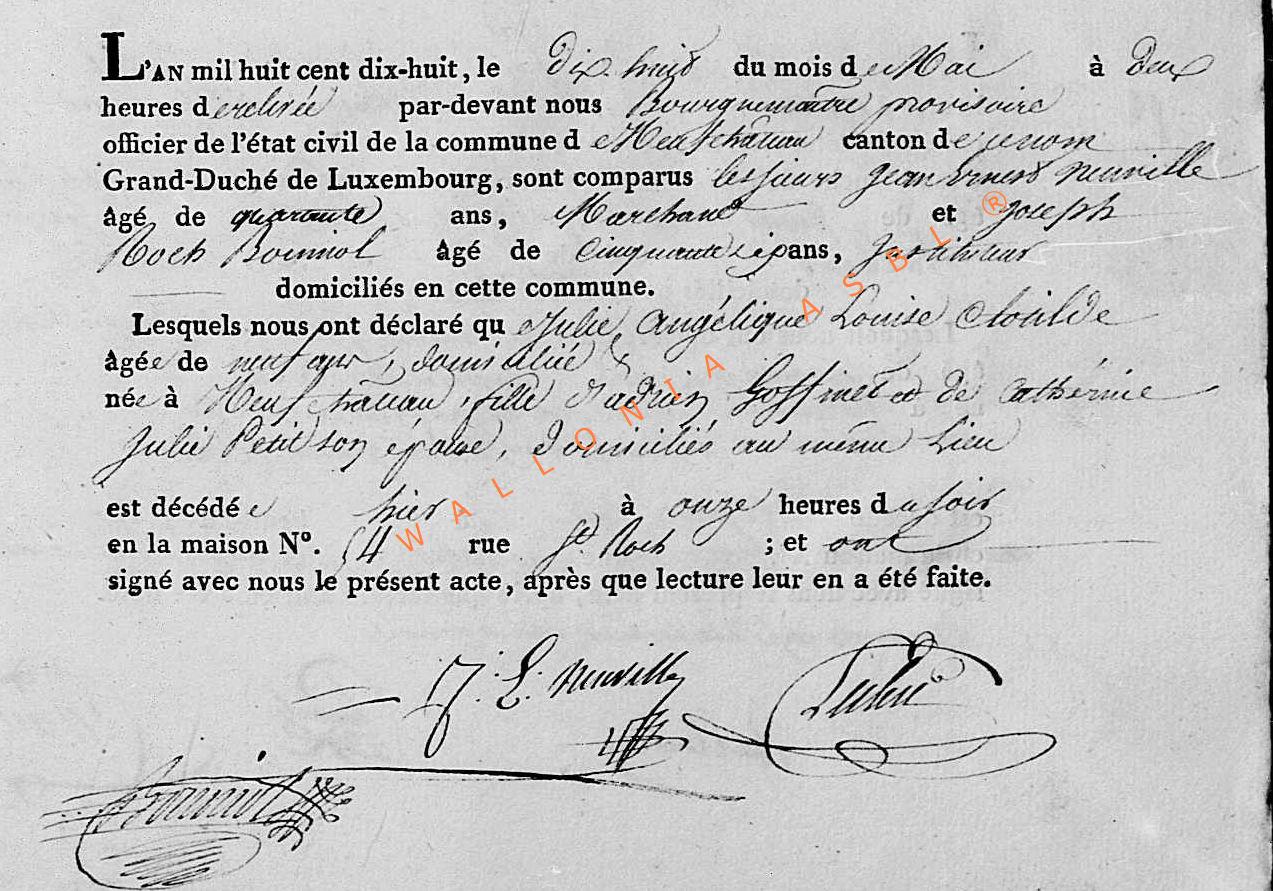 L'AN mil huit cent dix-huit, le Dix huit du mois de Mai à Deux
heures de relevée par-devant nous Bourguemaitre provisoire
officier de l'état civil de la commune de Neufchateau canton de ce nom
Grand-Duché de Luxembourg, sont comparus les sieurs Jean Ernest Neuville
âgé de quarante ans, Marchand et Joseph
Roch âgé de Cinquante ans,
domiciliés en cette commune.
Lesquels nous ont déclaré que Julie Angélique Louise Clotilde
âgée de neuf ans, domiciliée &
née à Neufchateau, fille d'adrien Goffinet et de Catherine
Julie Petit son épouse, Domiciliés au même Lieu
est décédée hier à onze heures du soir
en la maison N°. 54 rue St. Roch ; et ont
signé avec nous le présent acte, après que lecture leur en a été faite.
J. E. Neuville
WALLONIA ASBL ®